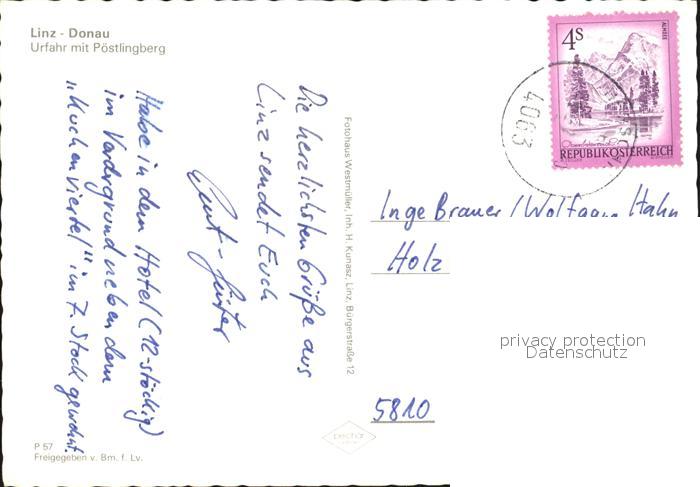 Linz - Donau
Urfahr mit Pöstlingberg
Die herzlichsten Grüße aus
Linz sendet Euch
Habe in dem Hotel (12-stöckig)
im Vordergrund neben dem
"Kuchenviertel" im 7. Stock gewohnt.
Fotohaus Westmüller, Inh. H. Kunasz, Linz, Bürgerstraße 12
4S
ALMSEE
REPUBLIK ÖSTERREICH
4063
Inge Brauer / Wolfgang Hahn
Holz
privacy protection
Datenschutz
5810
P 57
Freigegeben v. Bm. f. Lv.